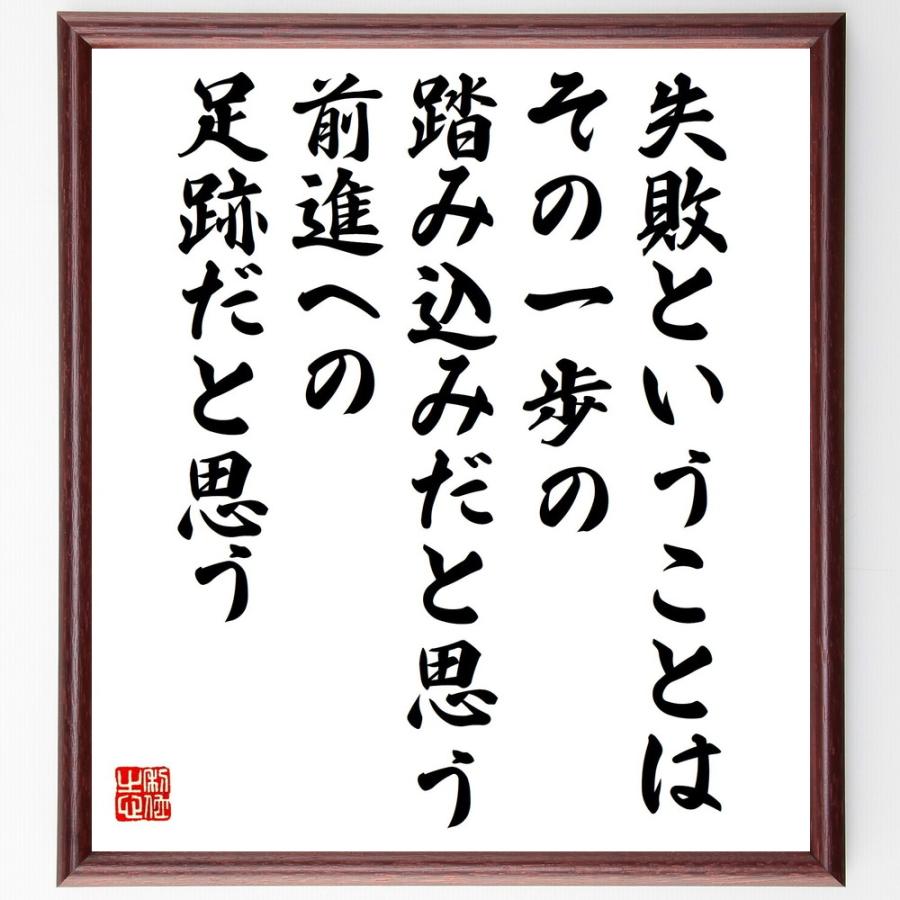 失敗ということは
その一歩の
踏み込みだと思う
前進への
足跡だと思う